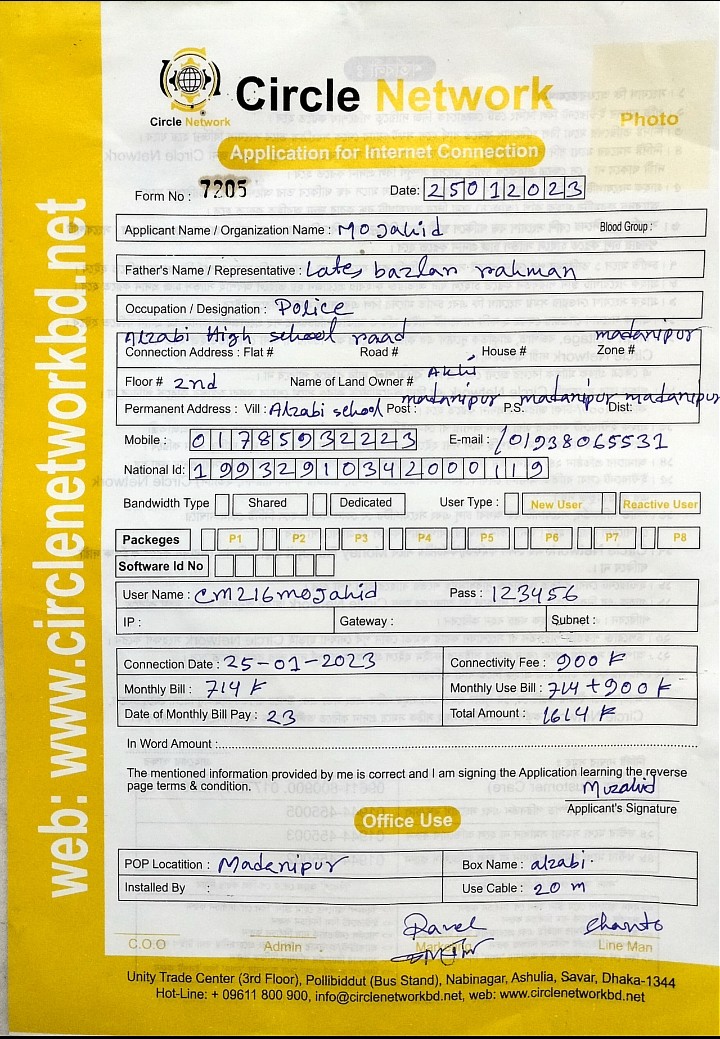 Circle Network
Circle Network
Photo
Application for Internet Connection
Form No : 7205
Date: 25012023
Applicant Name / Organization Name : Mojahid
Blood Group :
Father's Name / Representative : Late bazlar rahman
Occupation / Designation : Police
Alzabi High school road madanipur
Connection Address : Flat # Road # House # Zone #
Floor # 2nd Name of Land Owner # Akhi
Permanent Address : Vill : Alzabi school Post : madanipur P.S. madanipur Dist: madanipur
Mobile : 01785932223 E-mail : /01938065531
National Id: 19932910342000119
Bandwidth Type Shared Dedicated User Type : New User Reactive User
Packeges P1 P2 P3 P4 P5 P6 P7 P8
Software Id No
User Name : cm216mojahid Pass : 123456
IP : Gateway : Subnet :
Connection Date : 25-01-2023 Connectivity Fee : 900 ৳
Monthly Bill : 714 ৳ Monthly Use Bill : 714 + 900 ৳
Date of Monthly Bill Pay : 23 Total Amount : 1614 ৳
In Word Amount :
The mentioned information provided by me is correct and I am signing the Application learning the reverse
page terms & condition.
Mozahid
Applicant's Signature
Office Use
POP Locatition : Madanipur Box Name : alzabi.
Installed By : Use Cable : 20 m
Shanto
C.O.O Admin Marketing Line Man
Unity Trade Center (3rd Floor), Pollibiddut (Bus Stand), Nabinagar, Ashulia, Savar, Dhaka-1344
Hot-Line: + 09611 800 900, info@circlenetworkbd.net, web: www.circlenetworkbd.net
web: www.circlenetworkbd.net